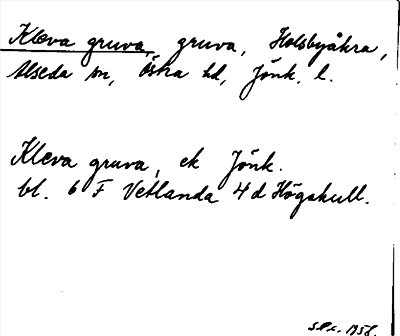 Kleva gruva, gruva, Holsbyåkra,
Alseda sn, Östra hd, Jönk. l.
Kleva gruva, ek Jönk.
bl. 6 F Vetlanda 4d Högskull.
1958.